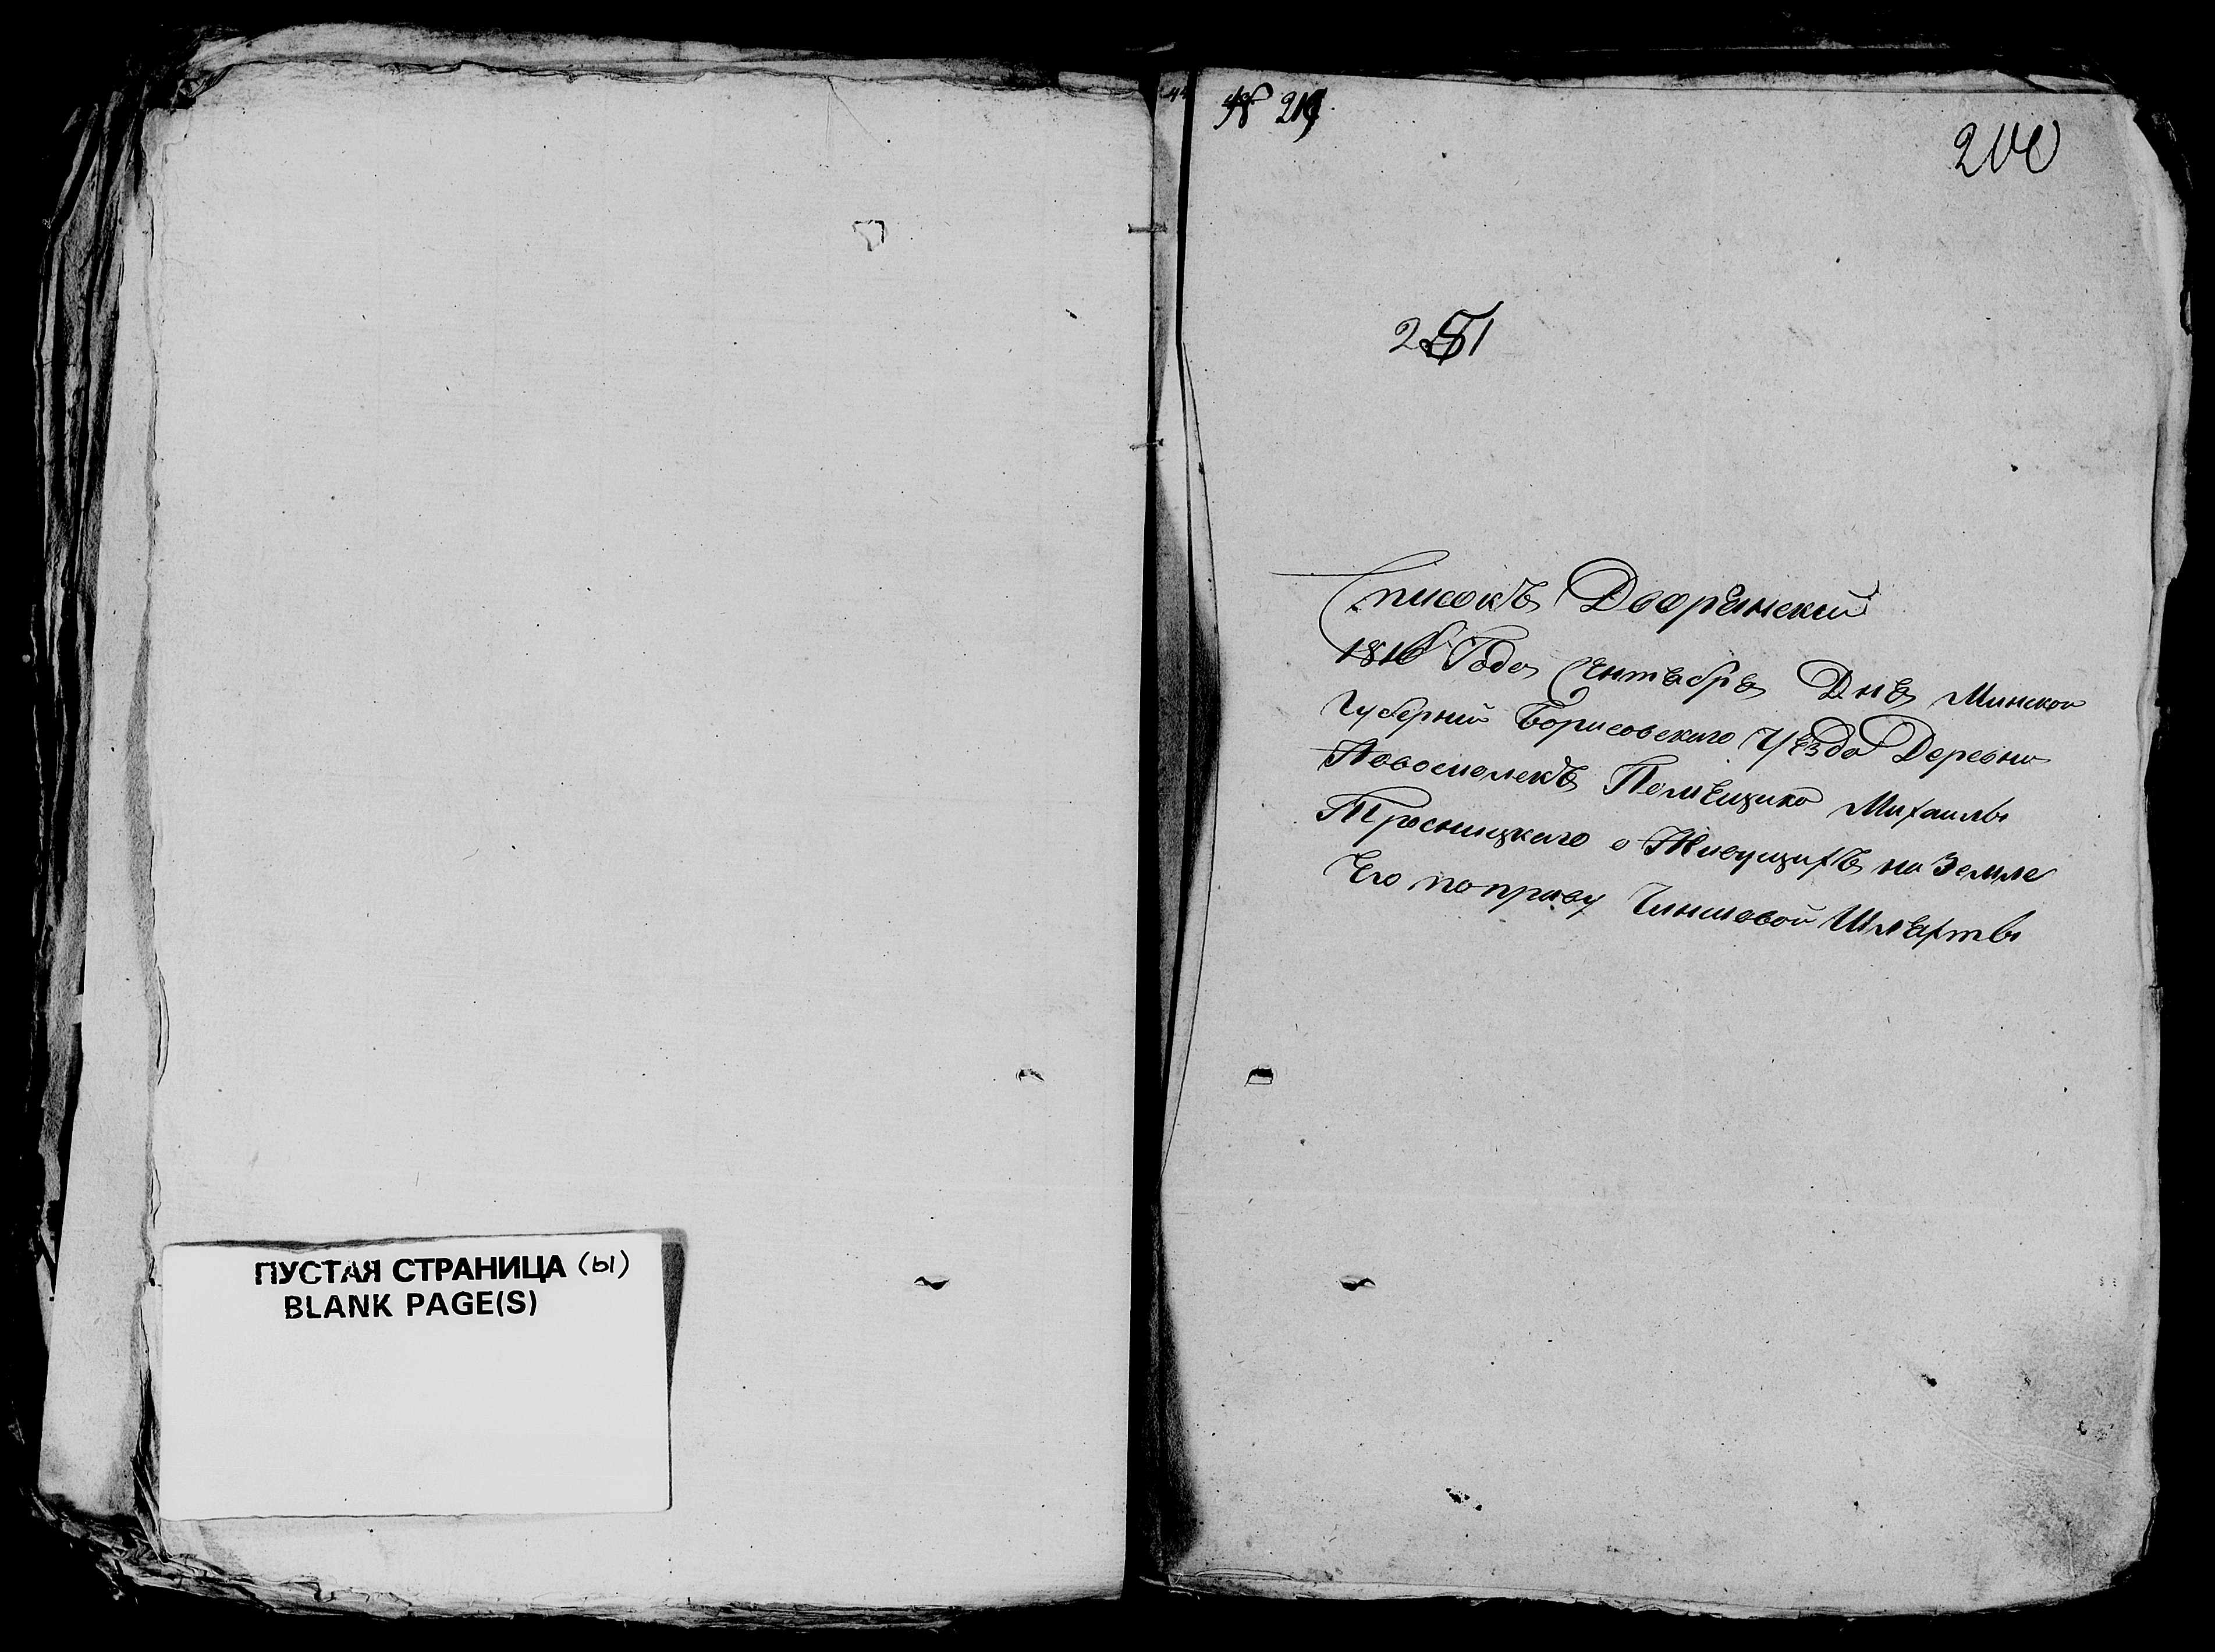 ПУСТАЯ СТРАНИЦА (ы)
BLANK PAGE(S)
№
200
251
Списокъ Дворѣнский
1816 Года СѣнтѣбрѣДнѣ Минской
Губерний Борисовскаго Уѣзда Деревни
Новоселекъ Помѣщика Михаилы
Тросницкаго о Живущихъ на Земле
Его по праву Чиншовой Шлѣхты